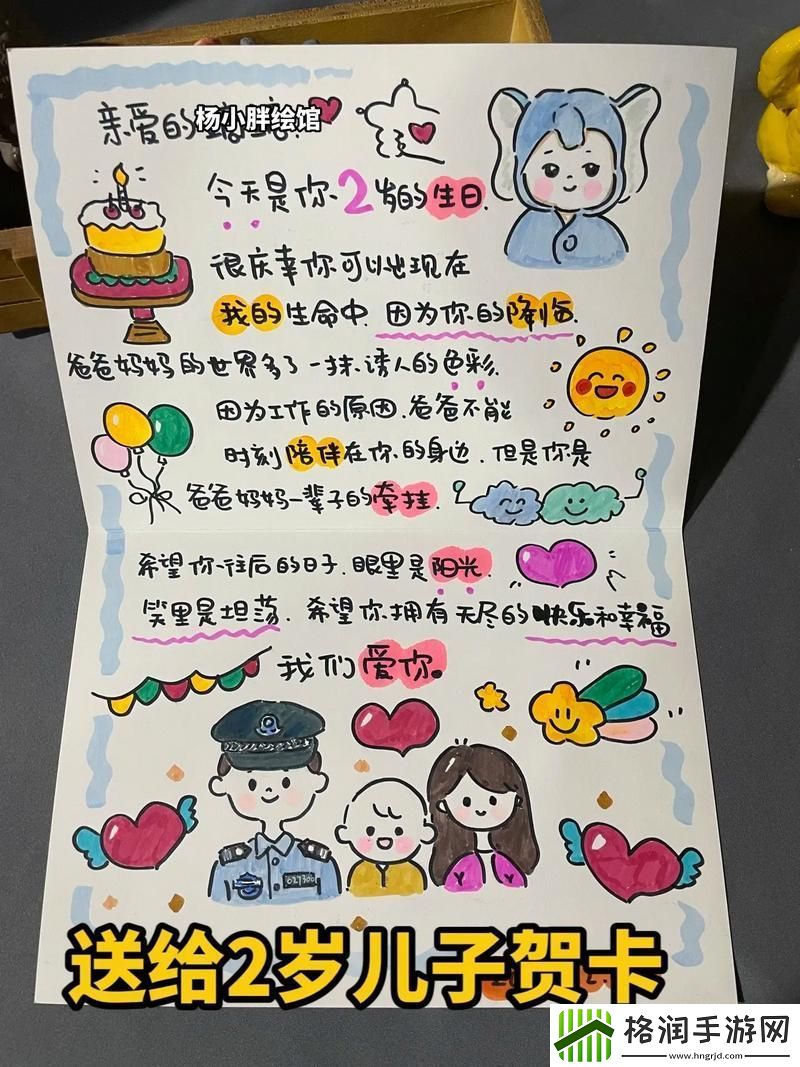 亲爱的
杨小胖绘馆
今天是你2岁的生日.
很庆幸你可以出现在
我的生命中.因为你的降临.
爸爸妈妈的世界多了一抹诱人的色彩.
因为工作的原因.爸爸不能
时刻陪伴在你的身边.但是你是
爸爸妈妈一辈子的牵挂.
希望你往后的日子.眼里是阳光.
笑里是坦荡.希望你拥有无尽的快乐和幸福
我们爱你。
送给2岁儿子贺卡
格润手游网
www.hngrjd.com